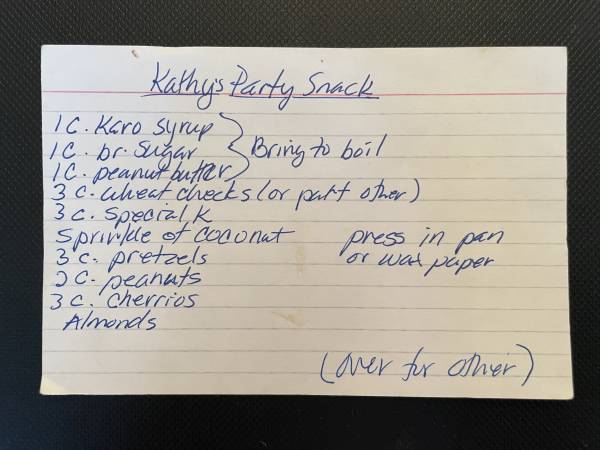 Kathy's Party Snack
1 C. Karo syrup
1 C. br. sugar
1 C. peanut butter
Bring to boil
3 c. wheat checks (or part other)
3 c. special K
Sprinkle of coconut
3 c. pretzels
2 c. peanuts
3 c. cherrios
Almonds
press in pan
or wax paper
(over for other)